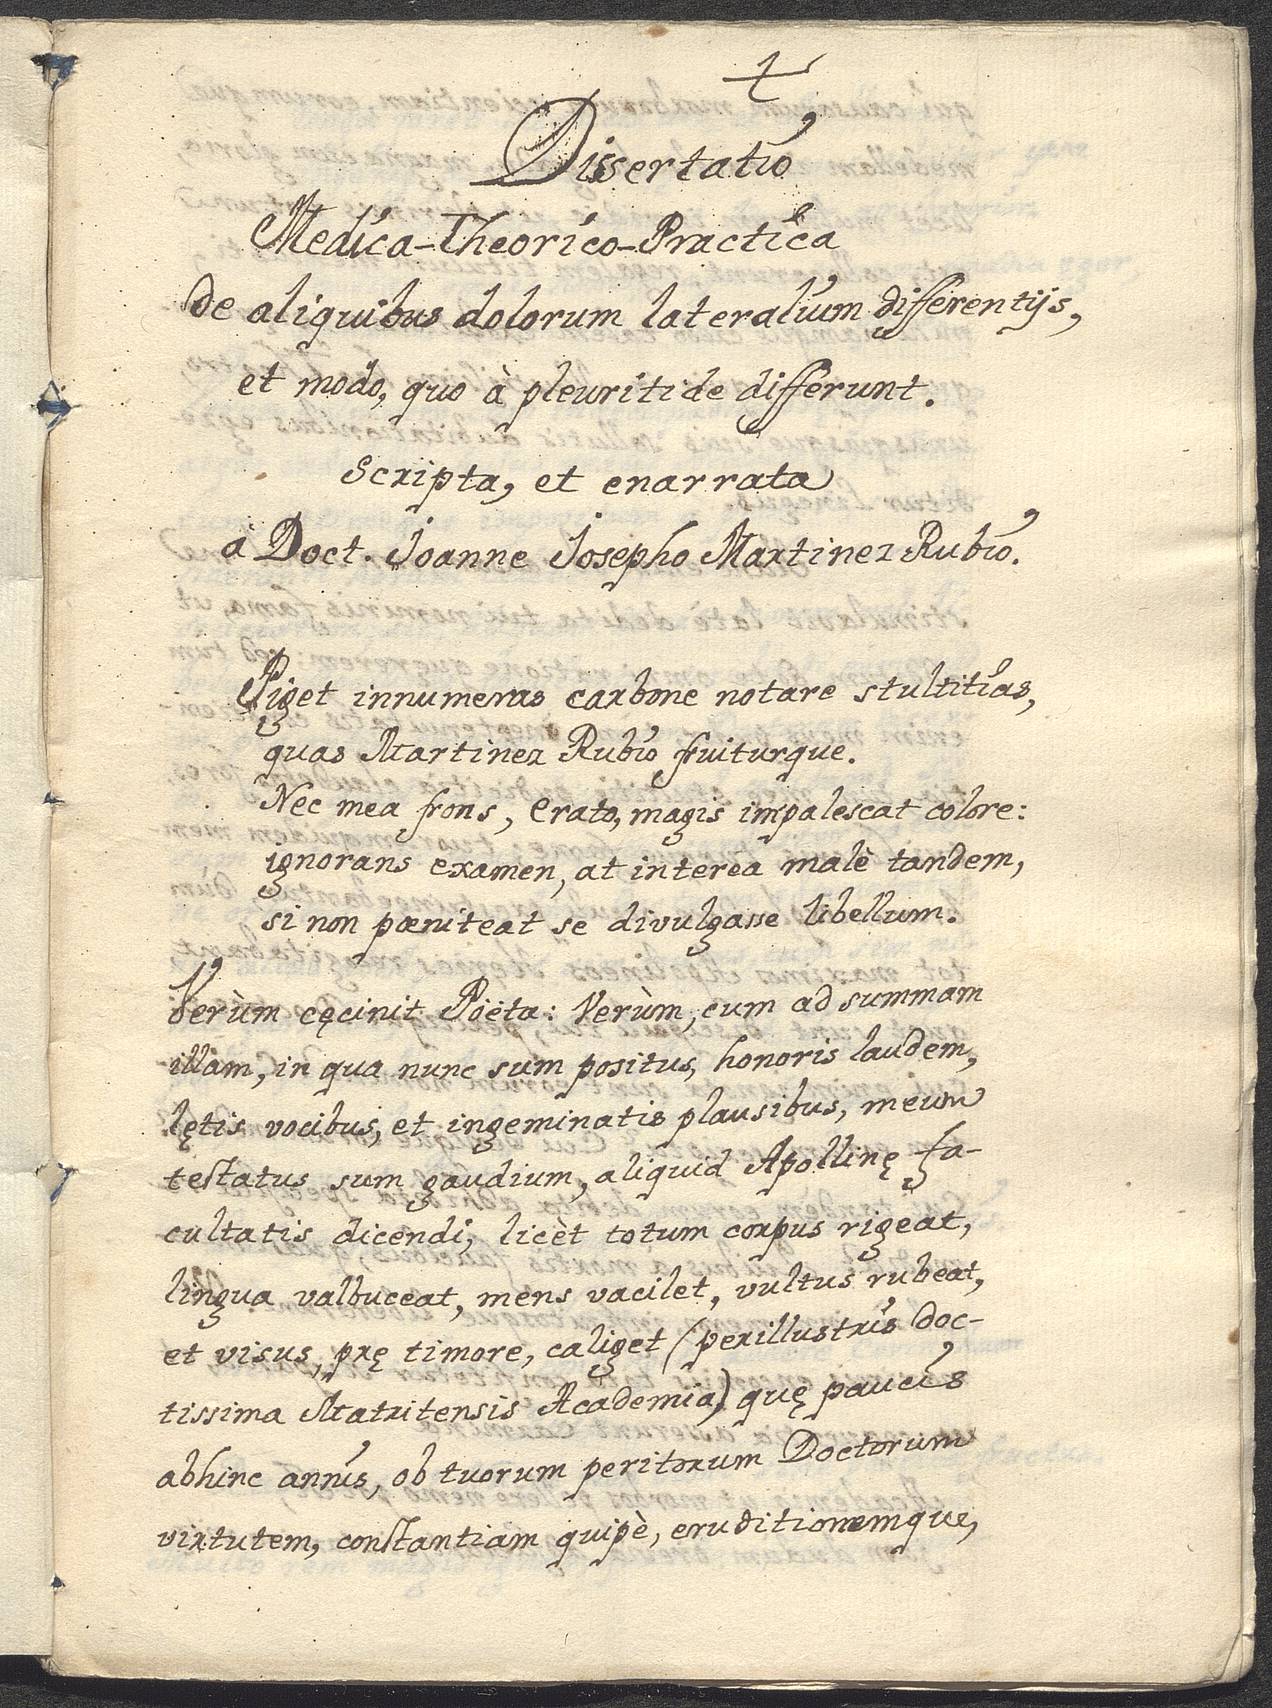 Dissertatio
Medica-Theorico-Practica
de aliquibus dolorum lateralium differentijs,
et modo, quo à pleuritide differunt.
Scripta, et enarrata
à Doct. Joanne Josepho Martinez Rubio.
Piget innumeras carbone notare stultitias,
quas Martinez Rubio, fruiturque.
Nec mea frons, erato, magis impalescat colore:
ignorans examen, at interea malè tandem,
si non pœniteat se divulgasse libellum.
Verùm cęcinit Poëta: Verùm, cum ad summam
illam, in qua nunc sum positus, honoris laudem,
lętis vocibus, et ingeminatis plausibus, meum
testatus sum gaudium, aliquid Apollinę fa-
cultatis dicendi, licèt totum corpus rigeat,
lingua valbuceat, mens vacilet, vultus rubeat,
et visus, prę timore, caliget (perillustris doc-
tissima Matritensis Academia) quę paucis
abhinc annis, ob tuorum peritorum Doctorum
virtutem, constantiam quipè, eruditionemque,